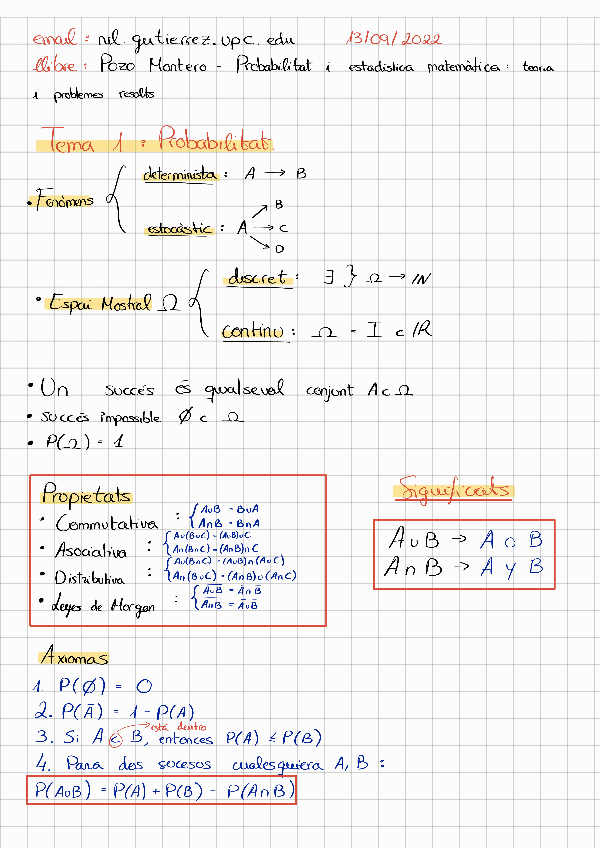 email: nil.gutierrez.upc.edu 13/09/2022
llibre: Pozo Montero - Probabilitat i estadística matemàtica: teoria
i problemes resolts
Tema 1: Probabilitat
• Fenòmens
determinista: A → B
estocàstic: A → B
→ C
→ D
• Espai Mostral Ω
discret: ∃ } Ω → IN
continu: Ω - I ⊂ IR
• Un succés és qualsevol conjunt A ⊂ Ω
• succés impossible Ø ⊂ Ω
• P(Ω) = 1
Propietats
• Commutativa : { A∪B = B∪A
A∩B = B∩A
• Asociativa : { A∪(B∪C) = (A∪B)∪C
A∩(B∩C) = (A∩B)∩C
• Distributiva : { A∪(B∩C) = (A∪B)∩(A∪C)
A∩(B∪C) = (A∩B)∪(A∩C)
• Leyes de Morgan : { A̅∪̅B̅ = A̅∩B̅
A̅∩̅B̅ = A̅∪B̅
Significats
A∪B → A o B
A∩B → A y B
Axiomas
1. P(Ø) = 0
2. P(A̅) = 1 - P(A)
→ está dentro
3. Si A ⊂ B, entonces P(A) ≤ P(B)
4. Para dos sucesos cualesquiera A, B :
P(A∪B) = P(A) + P(B) - P(A∩B)